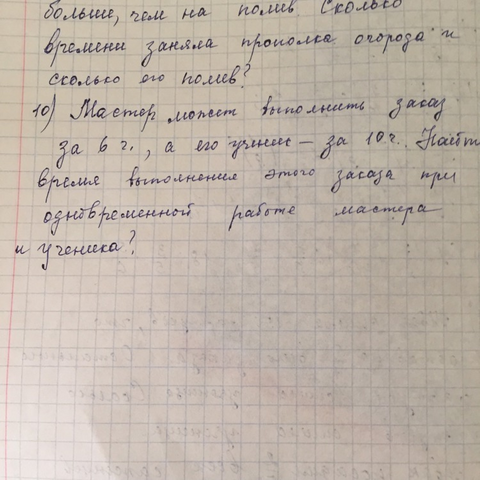 больше, чем на полив. Сколько
времени заняла прополка огорода и
сколько его полив?
10) Мастер может выполнить заказ
за 6 ч., а его ученик – за 10 ч. Найт
время выполнения этого заказа при
одновременной работе мастера
и ученика?